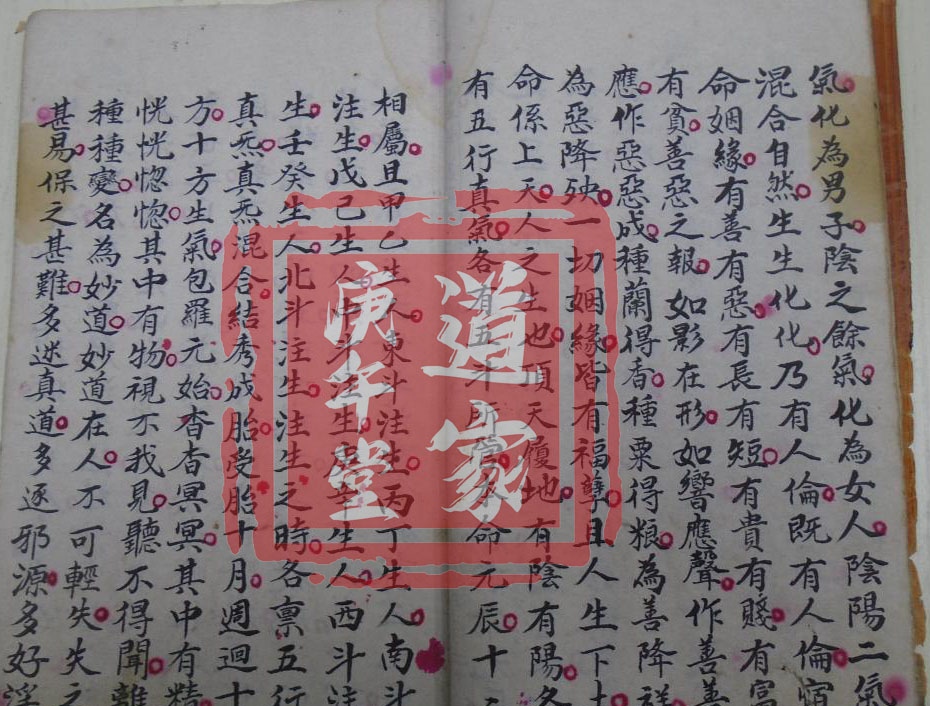 氣化為男子陰之餘氣化為女人陰陽二氣
混合自然生生化化乃有人倫既有人倫宿
命姻緣有善有惡有長有短有貴有賤有富
有貧善惡之報如影在形如響應聲作善善
應作惡惡成種蘭得香種粟得粮為善降祥
為惡降殃一切姻緣皆有福孽且人生下土
命係上天人之生也頂天履地有陰有陽各
有五行真氣各有五斗所管本命元辰十二
相屬且甲乙生人東斗注生丙丁生人南斗
注生戊己生人中斗注生庚辛生人西斗注
生壬癸生人北斗注生注生之時各禀五行
真炁真炁混合結秀成胎受胎十月週迴十
方十方生氣包羅元始杳杳冥冥其中有精
恍恍惚惚其中有物視不我見聽不得聞離
種種變名為妙道妙道在人不可輕失失之
甚易保之甚難多迷真道多逐邪源多好淫
道家
庚辛堂